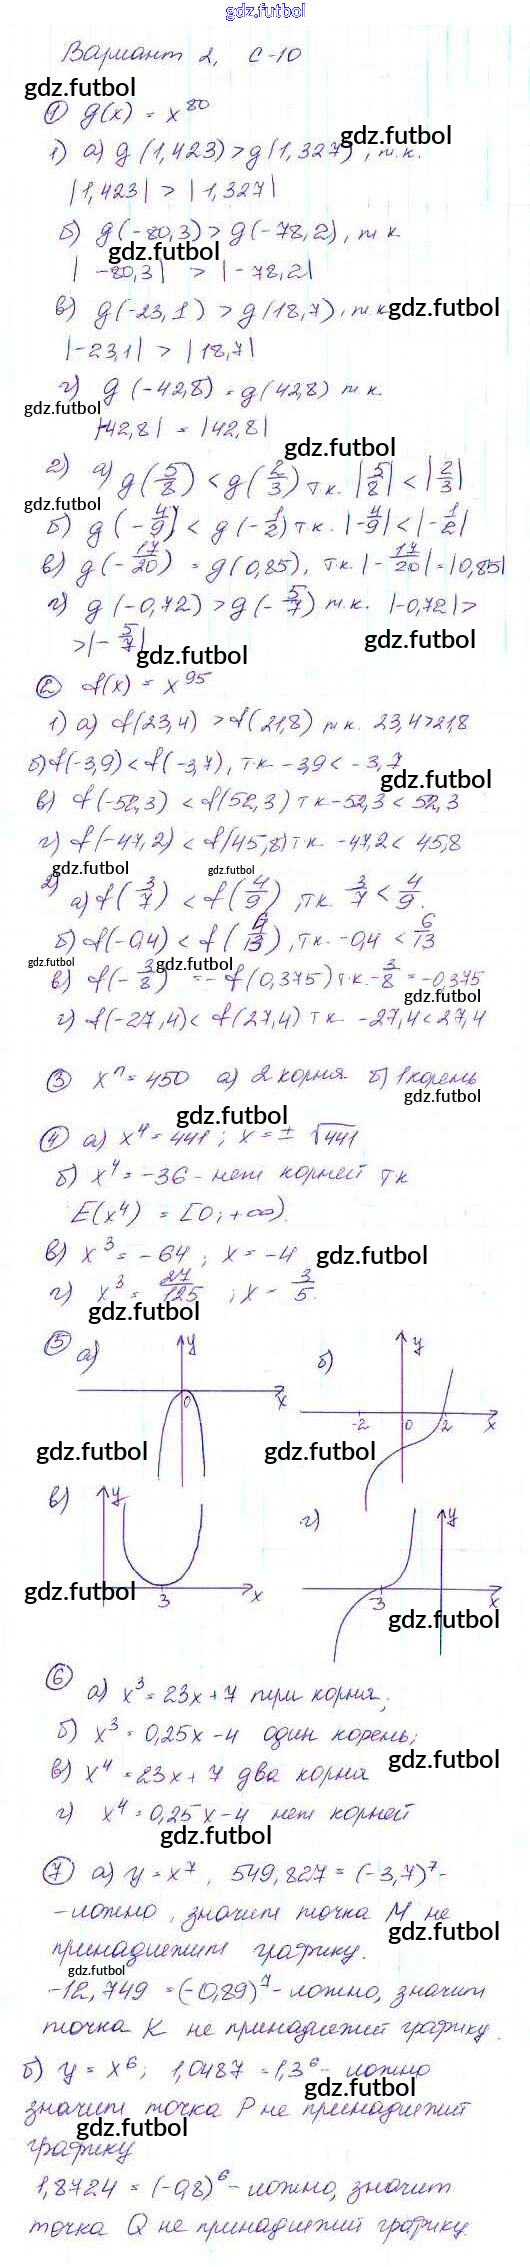 gdz.futbol
Вариант 2, С-10
gdz.futbol
① g(x) = x^80
gdz.futbol
1) а) g(1,423) > g(1,327), т.к.
|1,423| > |1,327|
б) g(-80,3) > g(-78,2), т.к.
gdz.futbol
|-80,3| > |-78,2|
в) g(-23,1) > g(18,7), т.к.
gdz.futbol
|-23,1| > |18,7|
г) g(-42,8) = g(42,8) т.к.
gdz.futbol
|-42,8| = |42,8|
gdz.futbol
2) а) g(5/8) < g(2/3) т.к. |5/8| < |2/3|
gdz.futbol
б) g(-4/9) < g(-1/2) т.к. |-4/9| < |-1/2|
в) g(-17/20) = g(0,85), т.к. |-17/20| = |0,85|
г) g(-0,72) > g(-5/7) т.к. |-0,72| >
gdz.futbol
> |-5/7|
gdz.futbol
② f(x) = x^95
1) а) f(23,4) > f(21,8) т.к. 23,4>21,8
б) f(-3,9) < f(-3,7), т.к -3,9 < -3,7
gdz.futbol
в) f(-52,3) < f(52,3) т к -52,3 < 52,3
г) f(-47,2) < f(45,8) т к -47,2 < 45,8
gdz.futbol
gdz.futbol
2) а) f(3/7) < f(4/9), т.к. 3/7 < 4/9.
б) f(-0,4) < f(6/13), т.к -0,4 < 6/13
gdz.futbol
gdz.futbol
в) f(-3/8) = -f(0,375) т.к. -3/8 = -0,375
gdz.futbol
г) f(-27,4) < f(27,4) т к -27,4 < 27,4
③ x^n = 450 а) 2 корня б) 1 корень
gdz.futbol
gdz.futbol
④ а) x^4 = 441; x = ± √441
б) x^4 = -36 - нет корней т к
E(x^4) = [0; +∞).
в) x^3 = -64; x = -4
gdz.futbol
г) x^3 = 27/125; x = 3/5.
gdz.futbol
⑤ а) y 0 x
б) y -2 0 2 x
gdz.futbol
gdz.futbol
в) y 3 x
г) y 3 x
gdz.futbol
gdz.futbol
⑥ а) x^3 = 23x + 7 три корня;
б) x^3 = 0,25x - 4 один корень;
gdz.futbol
в) x^4 = 23x + 7 два корня
г) x^4 = 0,25x - 4 нет корней
gdz.futbol
⑦ а) y = x^7, 549,827 = (-3,7)^7 -
- ложно, значит точка М не
gdz.futbol
принадлежит графику.
gdz.futbol
-12,749 = (-0,89)^7 - ложно, значит
точка К не принадлежит графику.
б) y = x^6; 1,0487 = 1,3^6 - ложно
gdz.futbol
значит точка Р не принадлежит
gdz.futbol
графику
1,8724 = (-0,8)^6 - ложно, значит
точка Q не принадлежит графику.